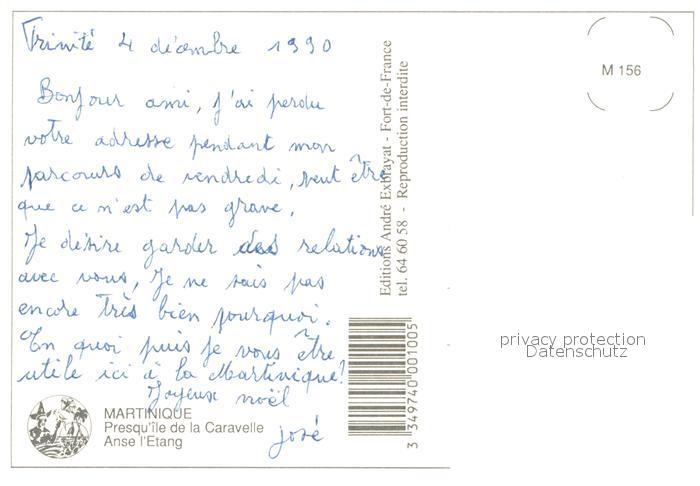 Trinité 4 décembre 1990
Bonjour ami, j'ai perdu
votre adresse pendant mon
parcours de vendredi, peut être
que ce n'est pas grave.
Je désire garder des relations
avec vous, Je ne sais pas
encore très bien pourquoi.
En quoi puis je vous être
utile ici à la Martinique?
Joyeux noël
josé
MARTINIQUE
Presqu'île de la Caravelle
Anse l'Etang
Editions André Exbrayat - Fort-de-France
tel. 64 60 58 - Reproduction interdite
3 349740 001005
M 156
privacy protection
Datenschutz